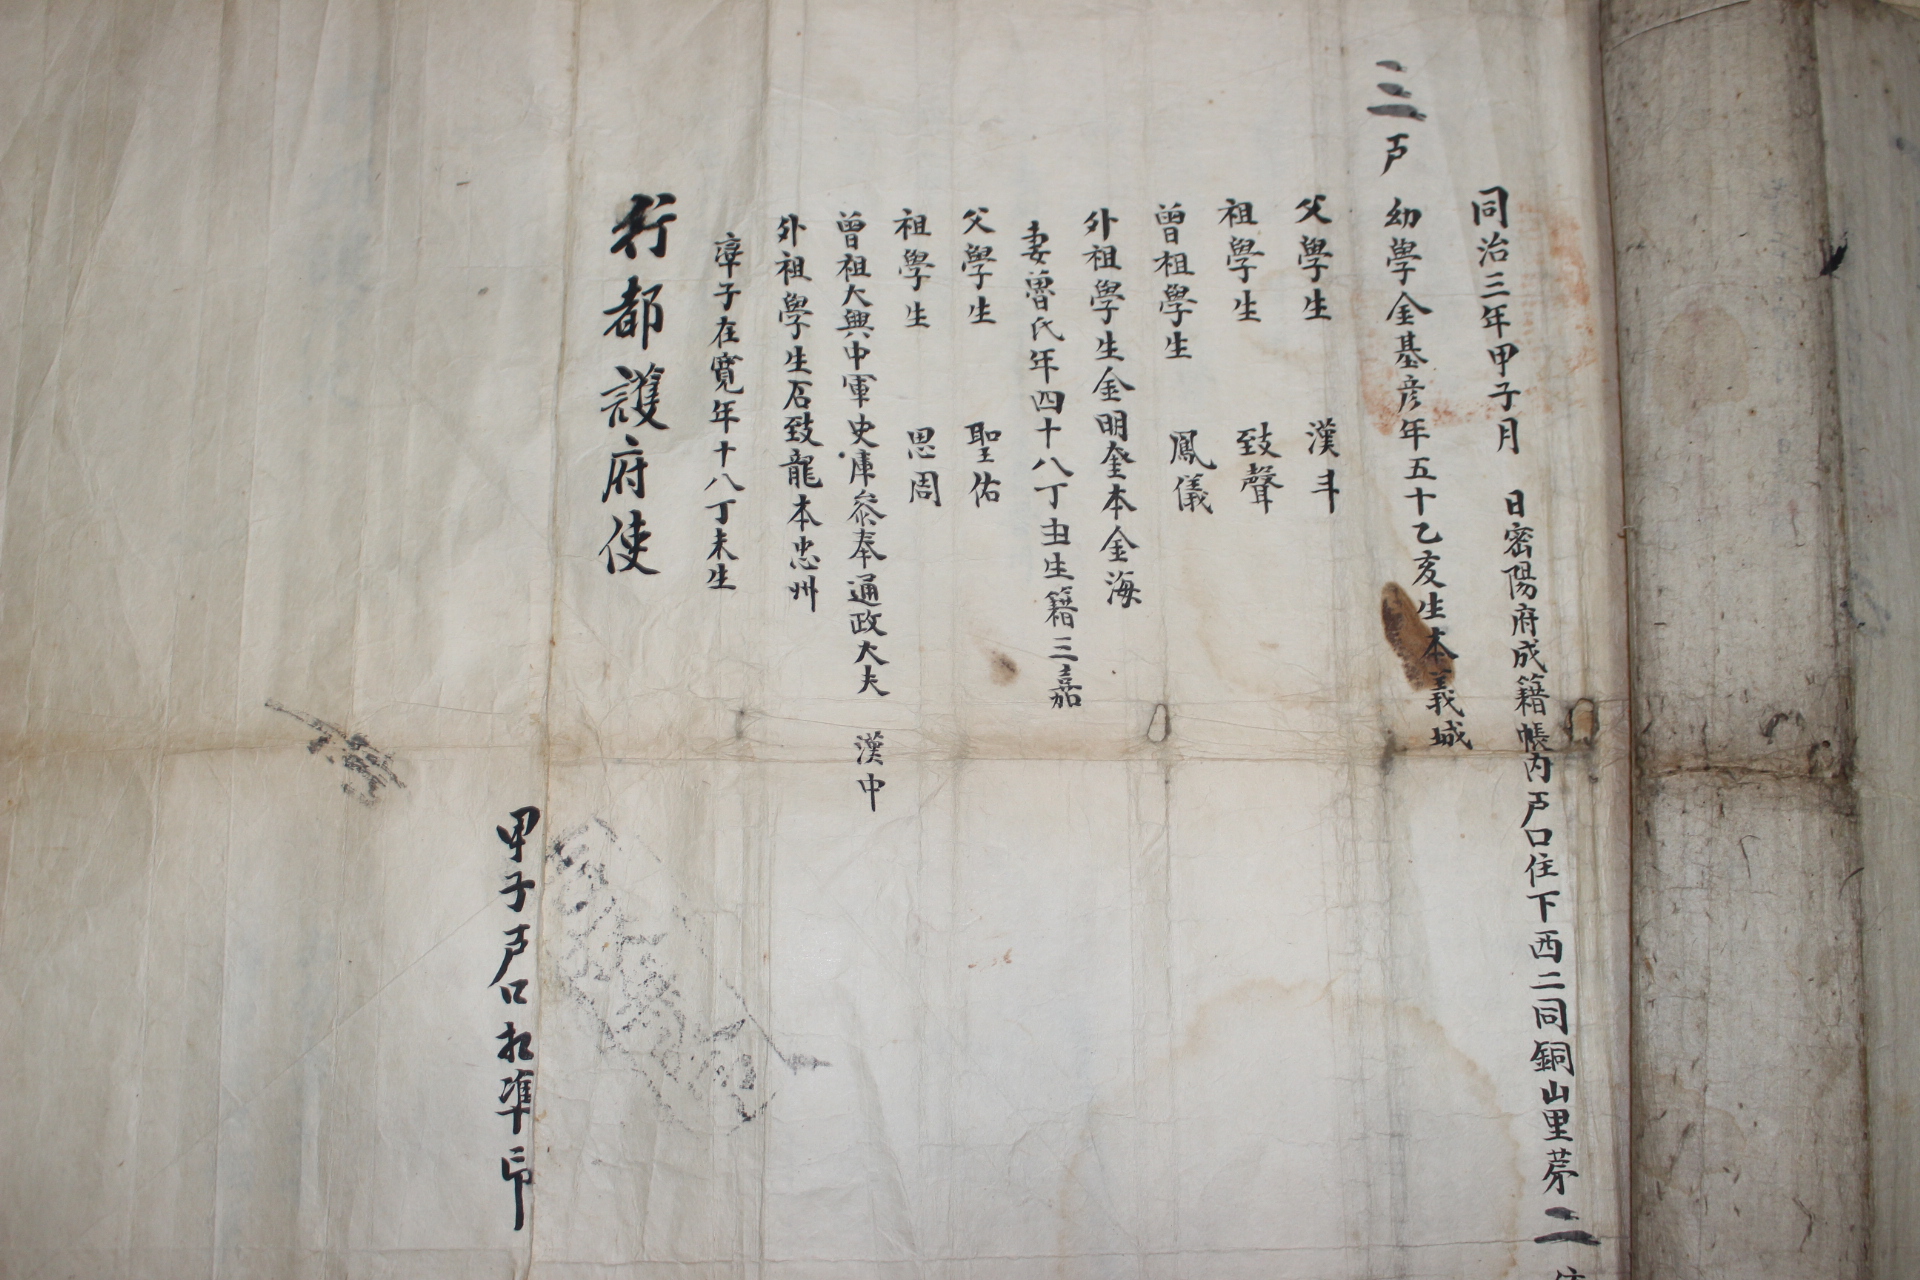 同治三年甲子月 日密陽府成籍帳內戶口住下西二同銅山里第二
三戶 幼學金基彦年五十乙亥生本義城
父學生 漢斗
祖學生 致聲
曾祖學生 鳳儀
外祖學生金明奎本金海
妻曺氏年四十八丁丑生籍三嘉
父學生 聖佑
祖學生 思周
曾祖大興中軍史庫參奉通政大夫 漢中
外祖學生石致龍本忠州
率子在寬年十八丁未生
行都護府使
甲子戶口相準印